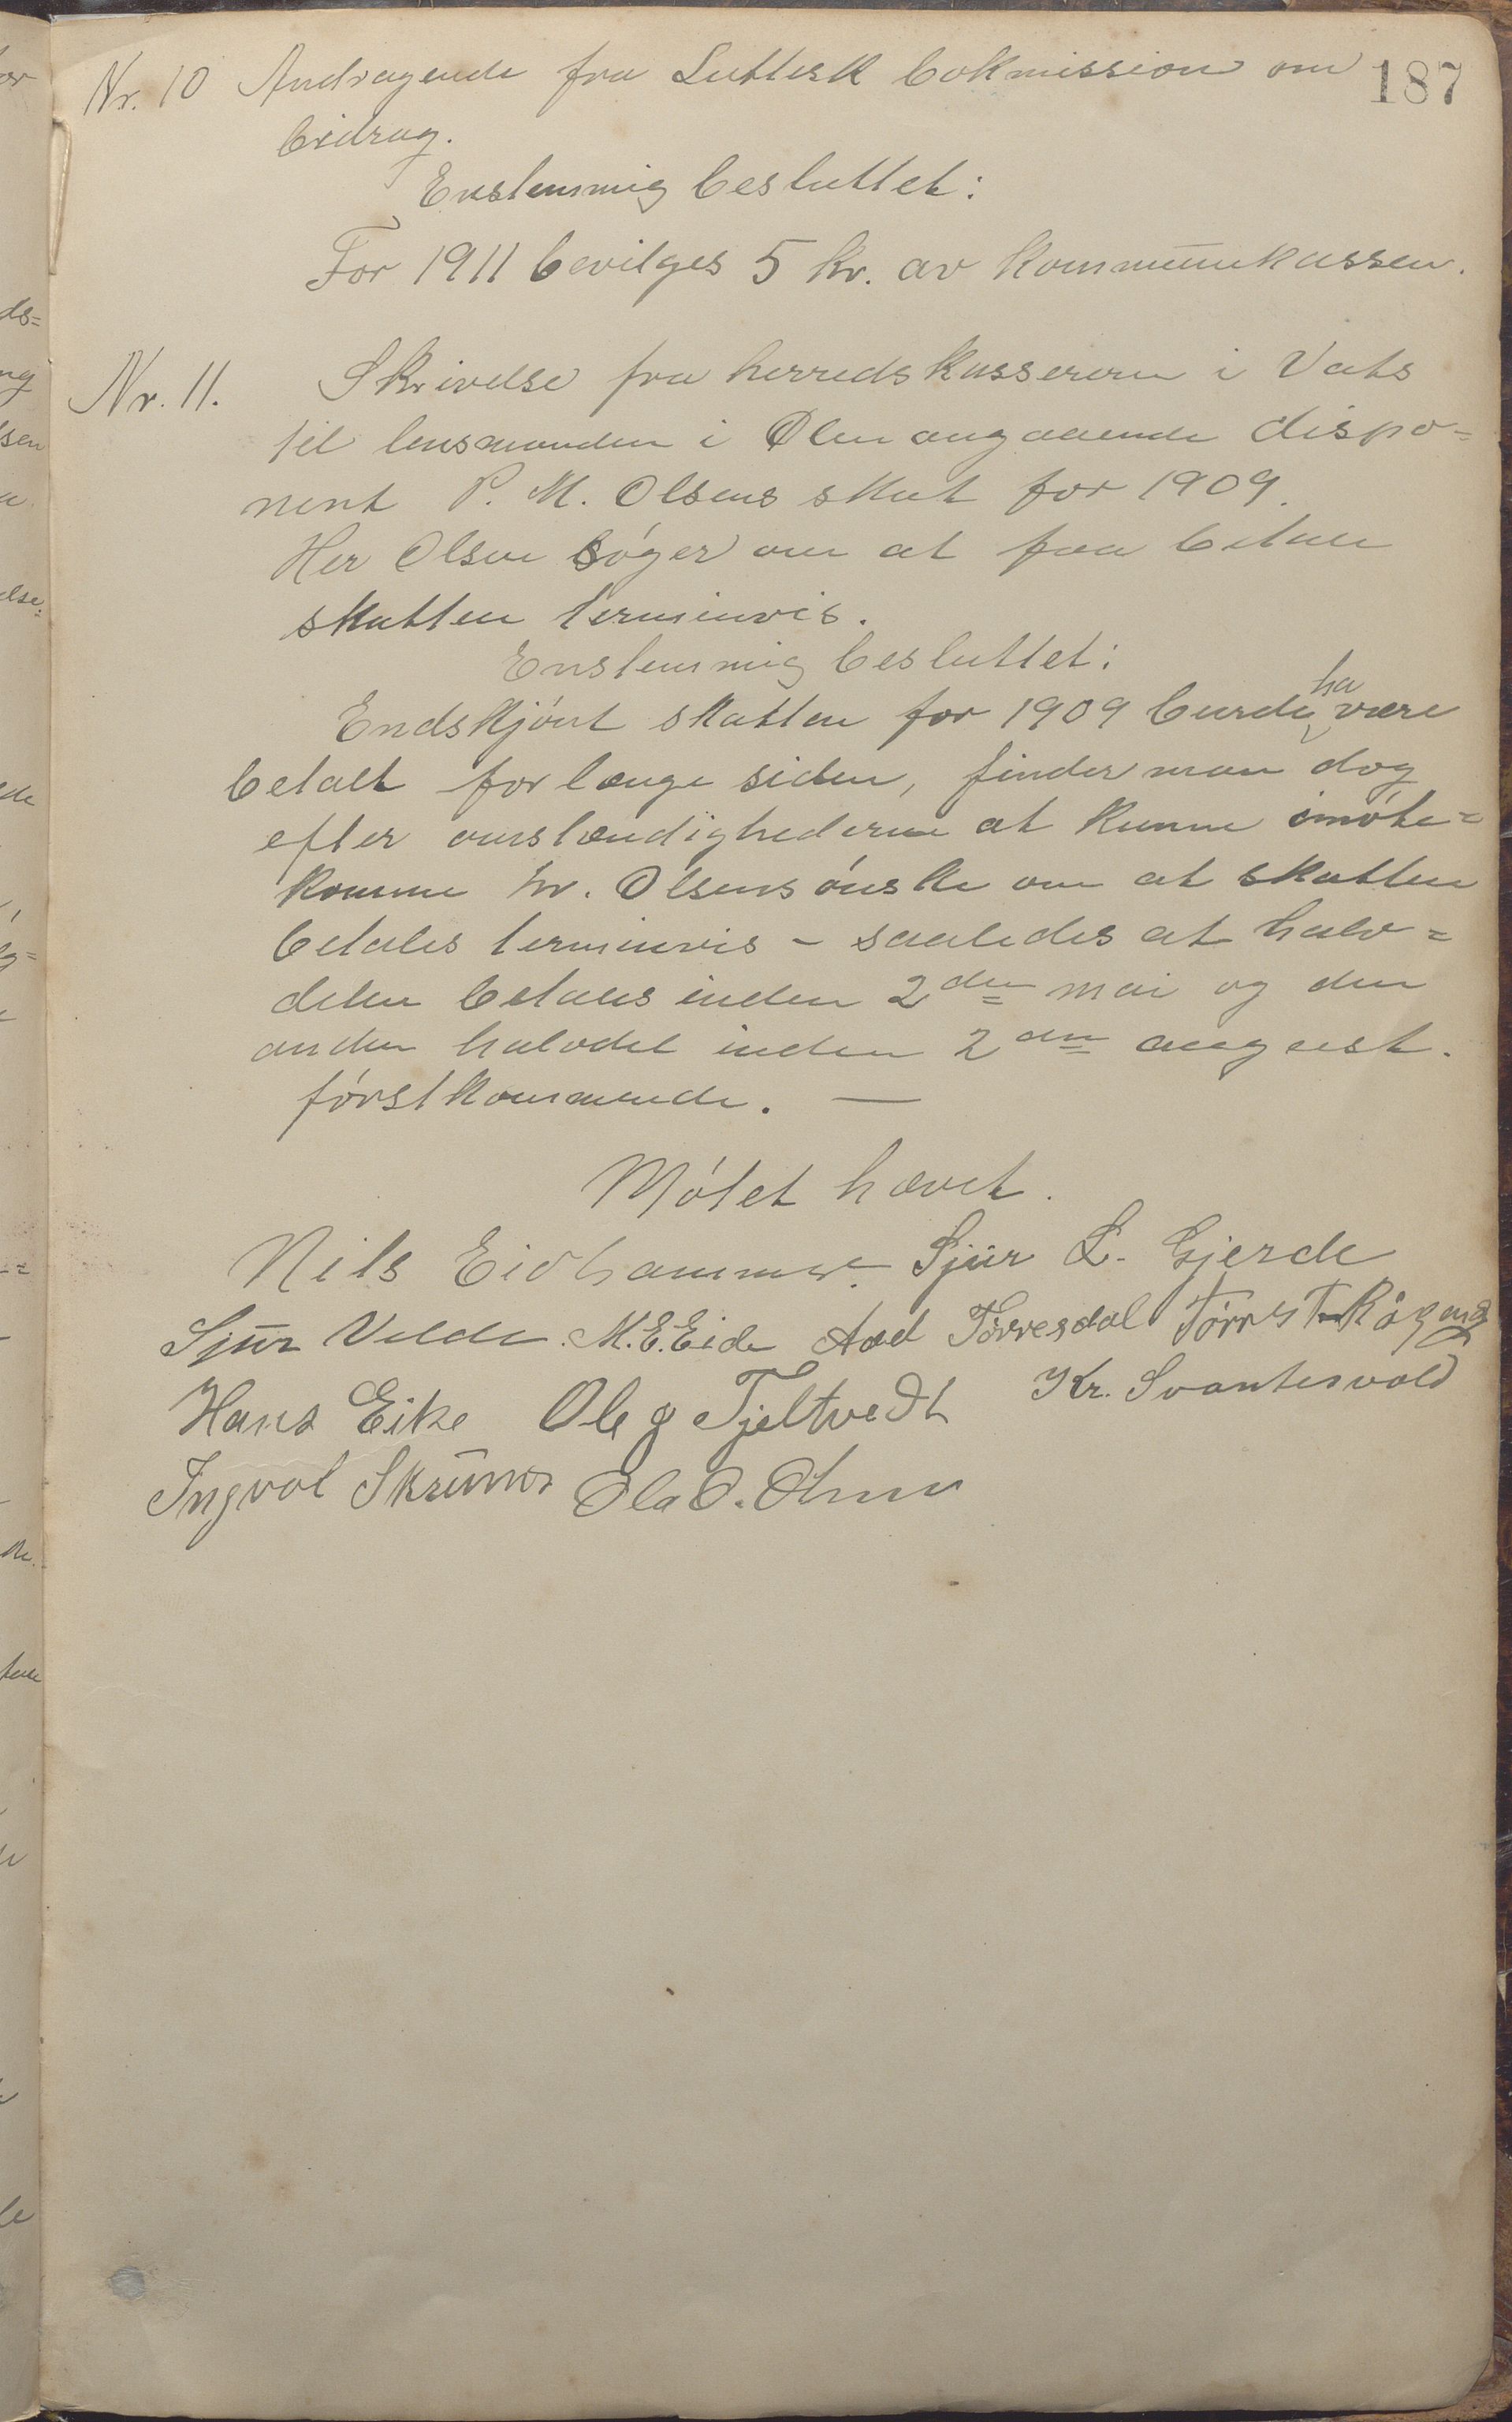 187
Nr. 10 Andragende fra Luttersk bokmission om
bidrag.
Enstemmig besluttet:
For 1911 bevilges 5 kr. av kommunekassen.
Nr. 11. Skrivelse fra herredskassereren i Vats
til lensmanden i Ølen angaaende dispo=
nent P. M. Olsens skat for 1909.
Her Olsen søger om at faa betale
skatten terminvis.
Enstemmig besluttet:
Endskjönt skatten for 1909 burde ha være
betalt for længe siden, finder man dog
efter omstændighederne at kunne imöte=
komme hr. Olsens önske om at skatten
betales terminvis - saaledes at halv=
delen betales inden 2den mai og den
anden halvdel inden 2den august.
förstkommende. —
Mötet hævet.
Nils Eidhammer. Sjur L. Gjerde
Sjur Velde. M. E. Eide Aad Törresdal Törres T.
Hans Eike Ole G Tjeltvedt Kr. Svantesvold
Ingvol Ola O.